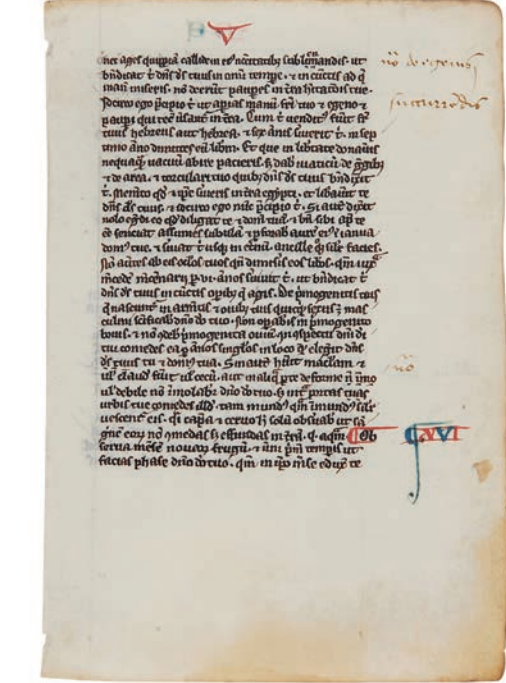 V
nec ages quippiā callide in eiꝰ nc̄citatibꝫ sublevandis. ut
bn̄dicat t̄ dn̄s ds̄ tuus in omī tempr̄e. ⁊ in cūctis ad q̄
manū miseris. nō deerūt paupes in tr̄a hītatiōis tue.
Idcirco ego p̄cipio t̄ ut apias manū fr̄i tuo ⁊ egeno ⁊
paupi qui tecū ūsant̄ in tr̄a. Cum t̄ venditꝰ fuit̄ fr̄
tuus hebreus aut hebrea. ⁊ sex ānis fuerit t̄. in sep
timo āno dimittes eū libm̄. Et quē in libtate donaūis
nequaq̄ vacuū abire pacieris. sꝫ dab̄ viaticū de ḡgibꝫ
⁊ de area. ⁊ torculari tuo quibꝫ dn̄s ds̄ tuus bn̄dixit
t̄. Memēto qd̄ ⁊ ip̄e fūeris in tr̄a egypti. ⁊ libaūit te
dn̄s ds̄ tuus. ⁊ idcirco ego nūc p̄cipio t̄. Si aut̄ dixit̄
nolo eg̊di eo qd̄ diligat te ⁊ domū tuā. ⁊ bn̄ sibi ap̄ te
eē senciat assumes subulā ⁊ pforab aurē eiꝰ ī ianua
domꝰ tue. ⁊ s̄uiat t̄ usqꝫ in et̄nū. ancille qꝫ sil̄r facies.
Nō aūtes ab eis oc̄los tuos qn̄ dimiseis eos libos. qm̄ iuxͣ
mc̄ede mc̄ēnarii p̱ vi. ānos s̄uiuit t̄. ut bn̄dicat t̄
dn̄s ds̄ tuus in cūctis opibꝫ q̄ agis. De p̄mogenitis
q̄ nascunt̄ in arm̄tis ⁊ ouibꝫ tuis quicqͥd sexus ē mas
culini sc̄ificab dn̄o do tuo. Nōn opabis in p̄mogenito
bouis. ⁊ nō tōdeb p̄mogenita ouiū. in cōspectu dn̄i di
tui comedes ea p̱ ānos singlos in loco quē elegit dn̄s
ds̄ tuus tu ⁊ domꝰ tua. Sin aut̄ hūit maclam ⁊
ul̄ claudū fūit ul̄ cecū. aut in aliqͣ p̱te deforme
ul̄ debile nō ī̄molab̄r dn̄o do tuo. sꝫ intͣ portas
urbis tue comedes illd̄. tam mundꝰ qm̄ īmundꝰ sil̄r
uescent̄ eis. q̄i cap̄a ⁊ ceruo. sꝫ solū obs̄uab ut sā
gnē eorꝫ nō comedas sꝫ effundas in tr̄a q̄i aq̄m. Ob
serua mēsē nouarꝫ frugū. ⁊ ūni p̄m̄ tempis ut
facias phase dn̄o do tuo. qm̄ in ip̄o mēse eduxͭ te
XVI